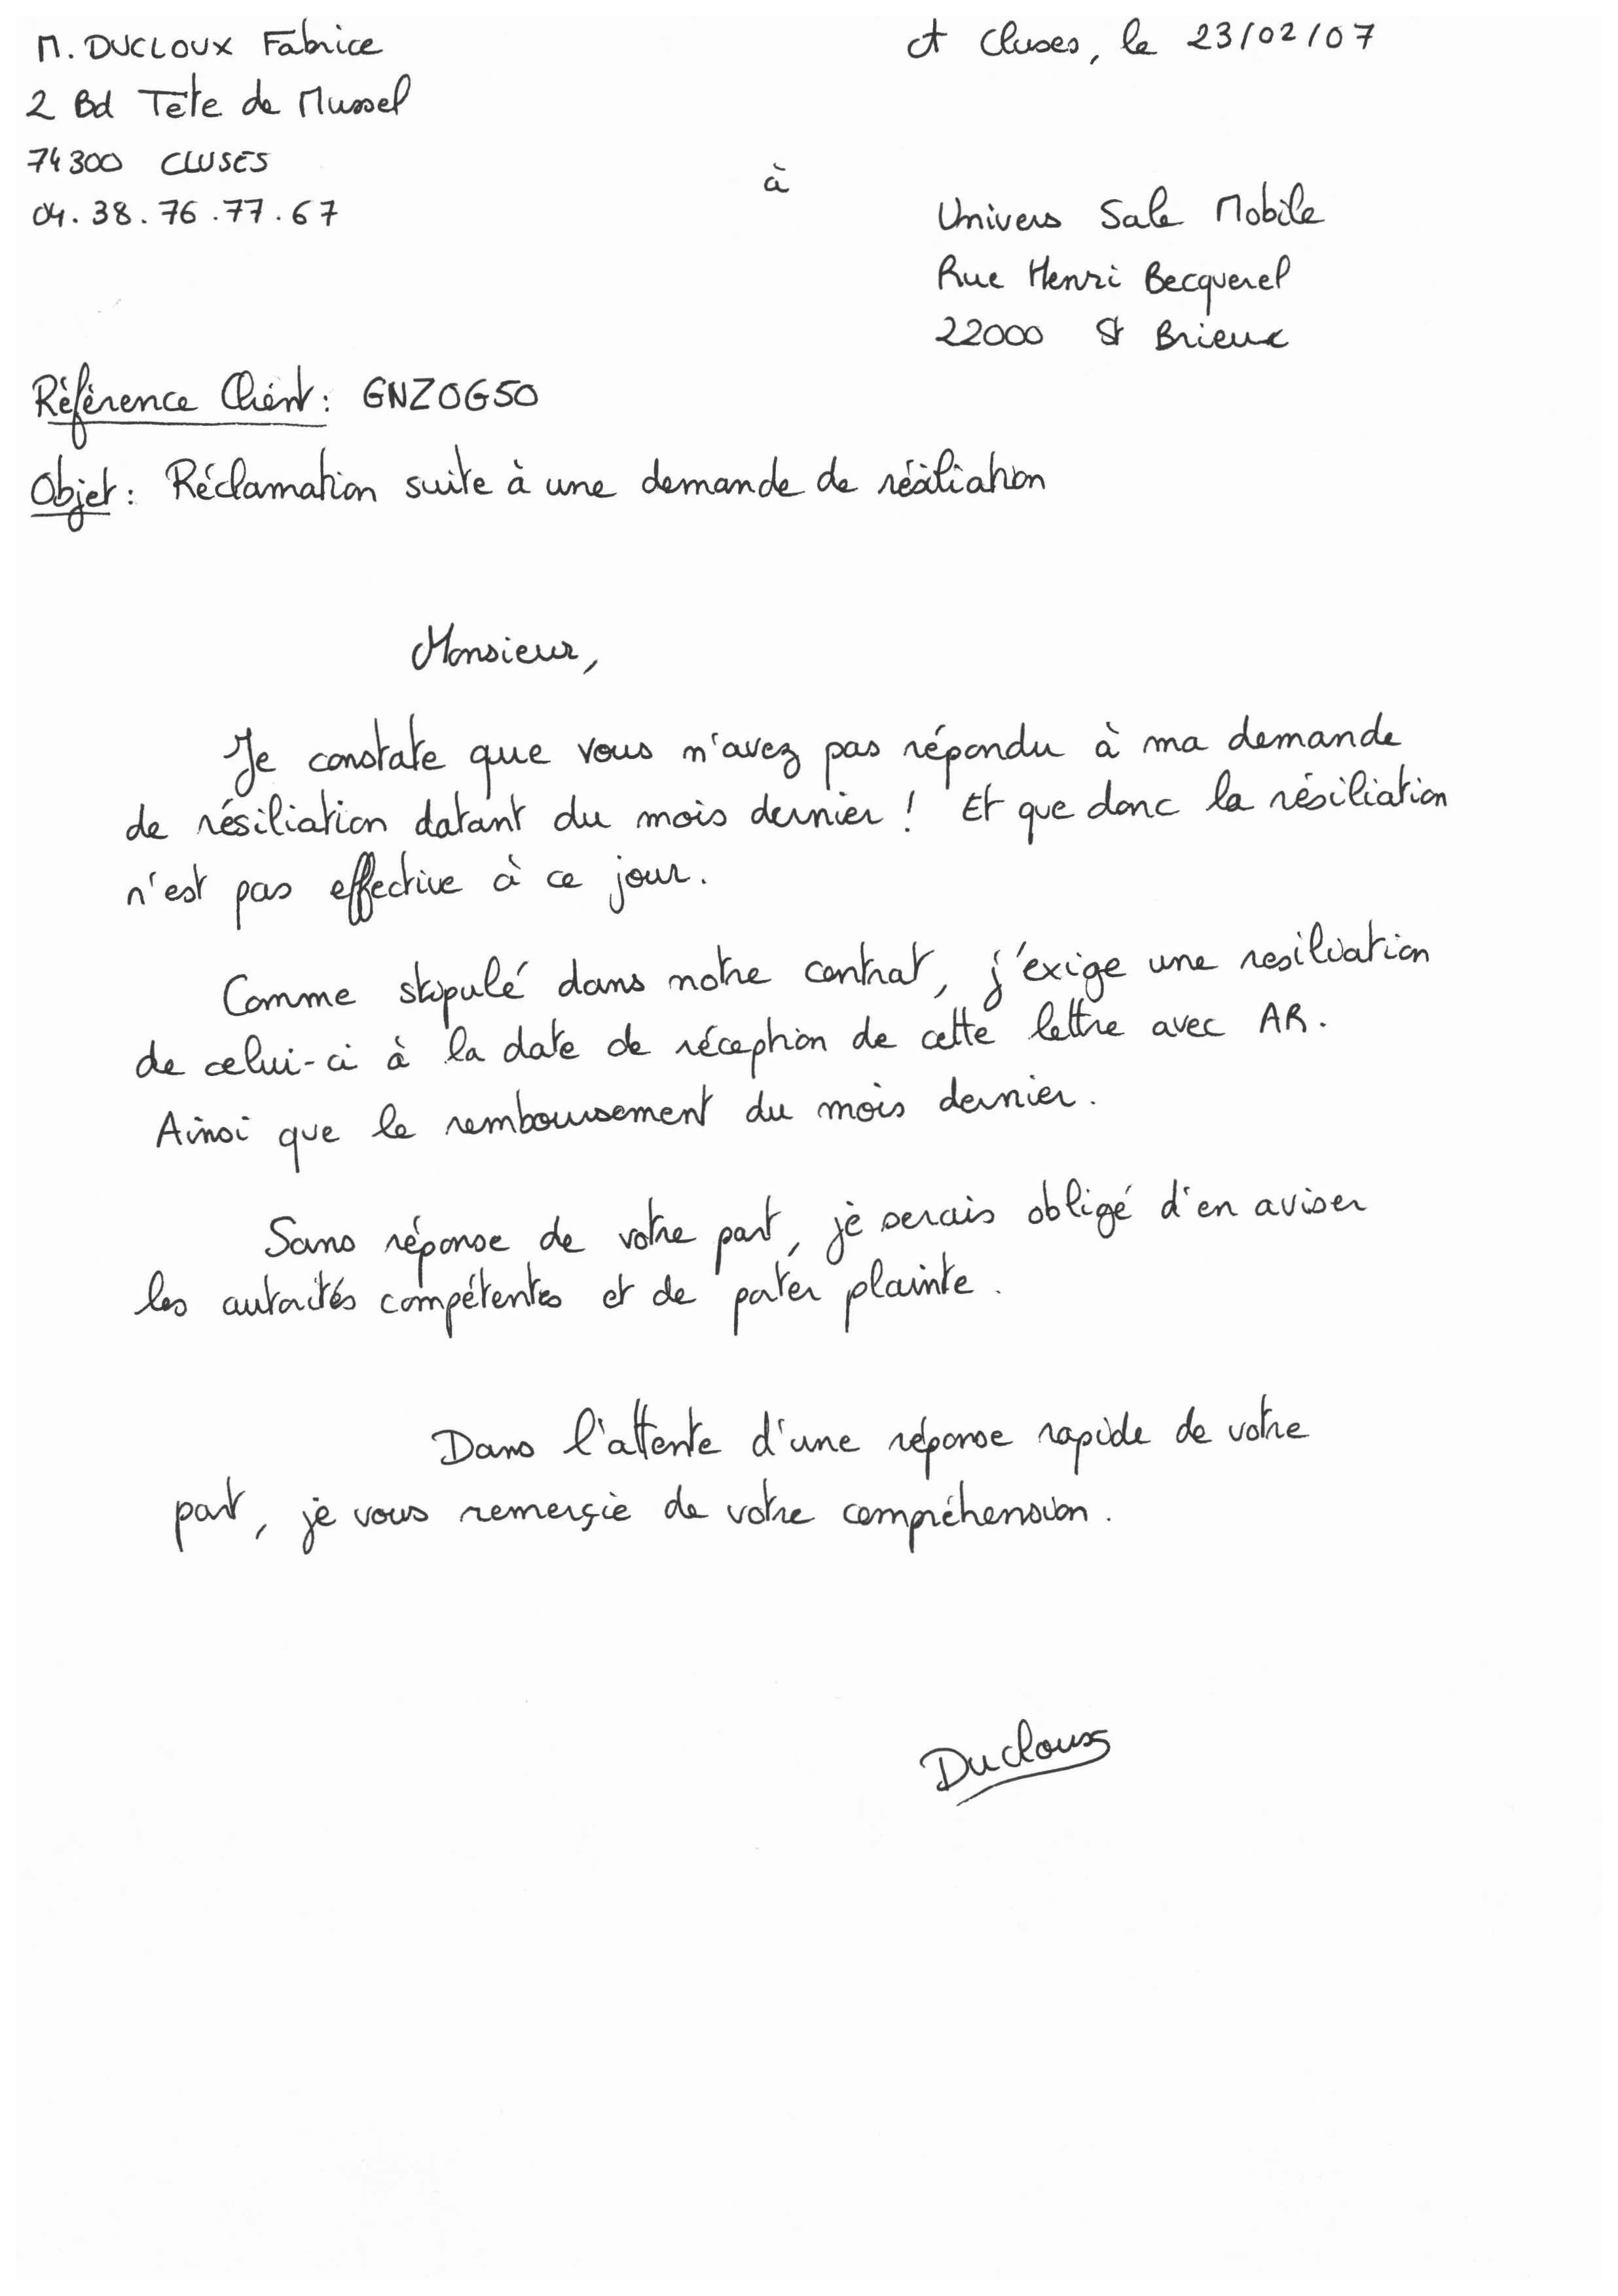 M. DUCLOUX Fabrice
2 Bd Tête de Mussel
74300 CLUSES
04.38.76.77.67
A Cluses, le 23/02/07
à
Univers Sale Mobile
Rue Henri Becquerel
22000 St Brieuc
Référence Client : GNZOG50
Objet : Réclamation suite à une demande de résiliation
Monsieur,
Je constate que vous n'avez pas répondu à ma demande
de résiliation datant du mois dernier ! Et que donc la résiliation
n'est pas effective à ce jour.
Comme stipulé dans notre contrat, j'exige une resiliation
de celui-ci à la date de réception de cette lettre avec AR.
Ainsi que le remboursement du mois dernier.
Sans réponse de votre part, je serais obligé d'en aviser
les autorités compétentes et de porter plainte.
Dans l'attente d'une réponse rapide de votre
part, je vous remerçie de votre compréhension.
Ducloux